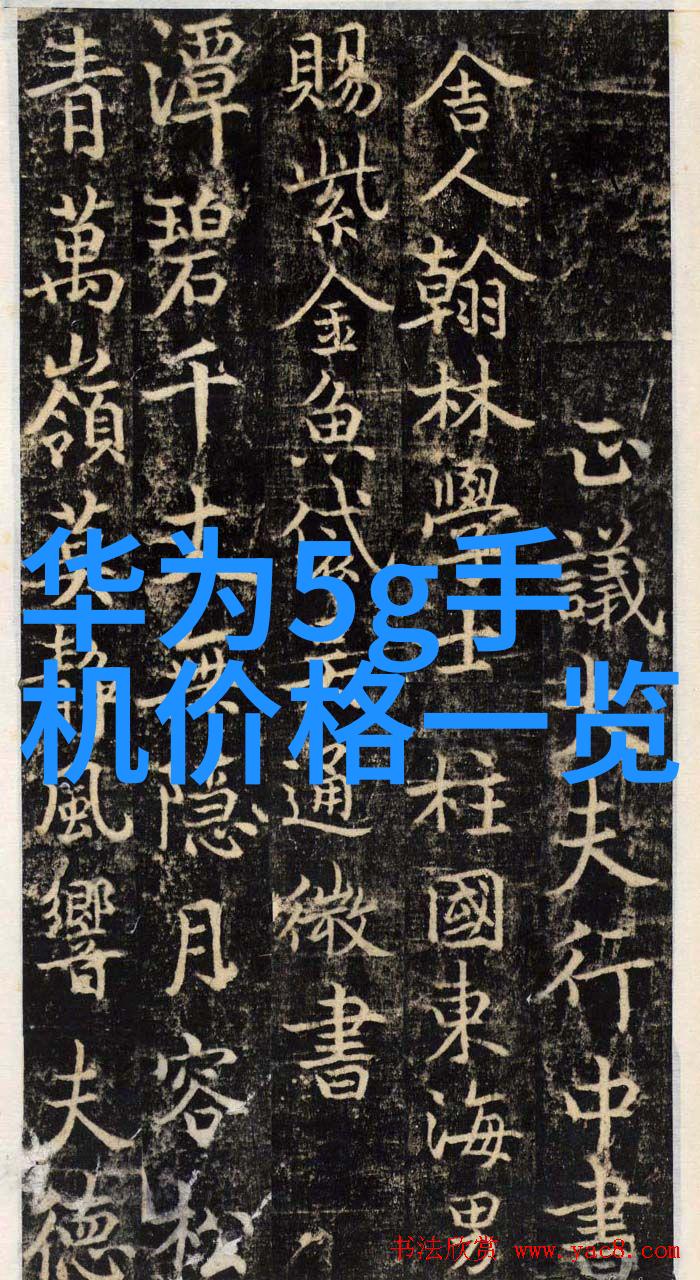 正議大夫行中書
舍人翰林學士柱國東海男
賜紫金魚袋通微書
潭碧千丈無隱月容松
青萬嶺莫靜風響夫德
华为5g手
机价格一览
书法欣赏 www.yac8.com